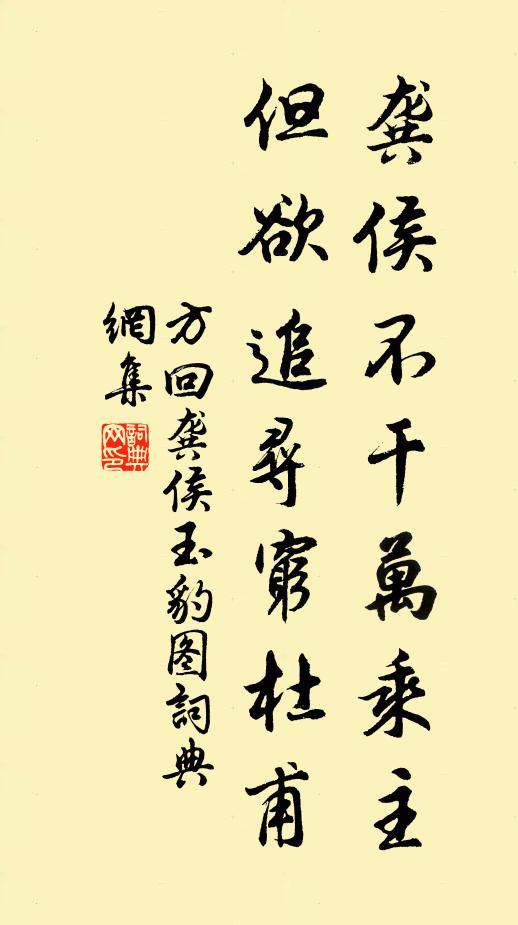 龔侯不干萬乘主
但欲追尋窮杜甫
方回龔侯玉豹图詞典
網集
詞典網印